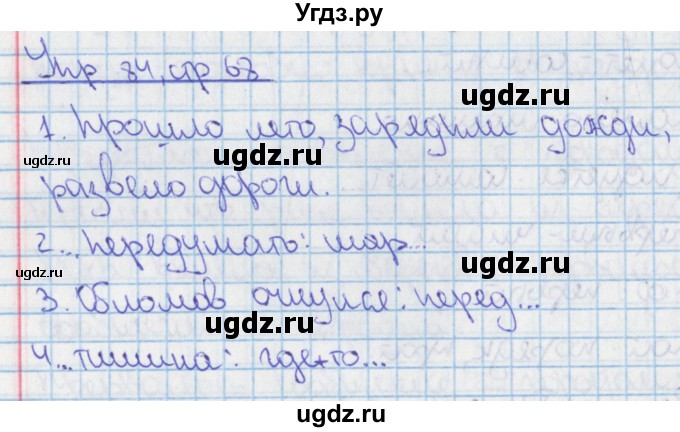 Угдз.ру
Упр 84, стр 68
ugdz.ru
1. Прошло лето, зарядили дожди,
ugdz.ru ugdz.ru
развело дороги.
ugdz.ru
2... передумать: шар...
ugdz.ru
3. Обломов очнулся: перед...
ugdz.ru ugdz.ru
4... тишина: где-то...
ugdz.ru
ugdz.ru